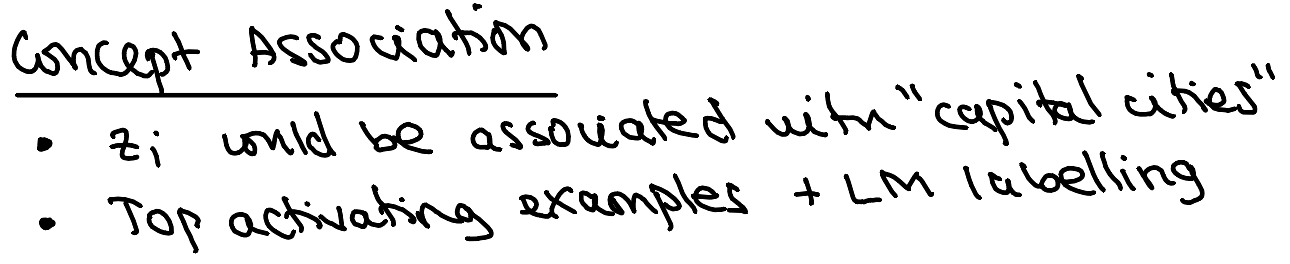 Concept Association
• zi could be associated with "capital cities"
• Top activating examples + LM labelling